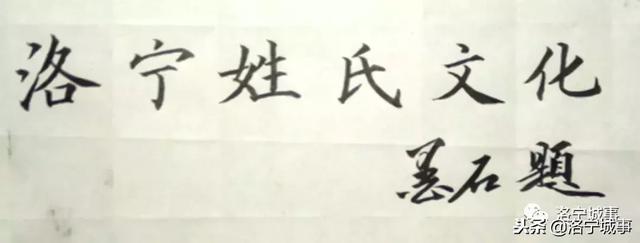 洛宁姓氏文化
墨石题
洛宁城事
头条@洛宁城事